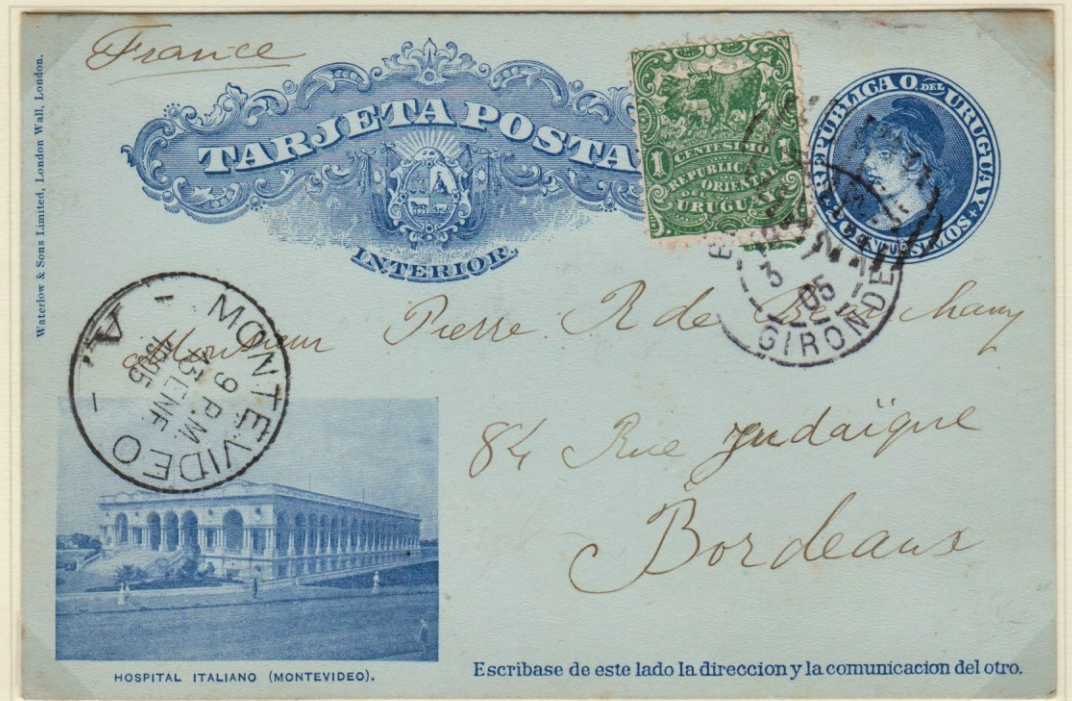 France
Waterlow & Sons Limited, London Wall, London.
TARJETA POSTA
INTERIOR
1 CENTESIMO 1
REPUBLICA
ORIENTAL
DEL
URUGU
REPUBLICA O. DEL URUGUAY
GIRONDE
3
05
MONTEVIDEO
9 P.M.
13 ENE
1905
A
Monsieur Pierre R de
84 Rue Judaïque
Bordeaux
HOSPITAL ITALIANO (MONTEVIDEO).
Escribase de este lado la direccion y la comunicacion del otro.